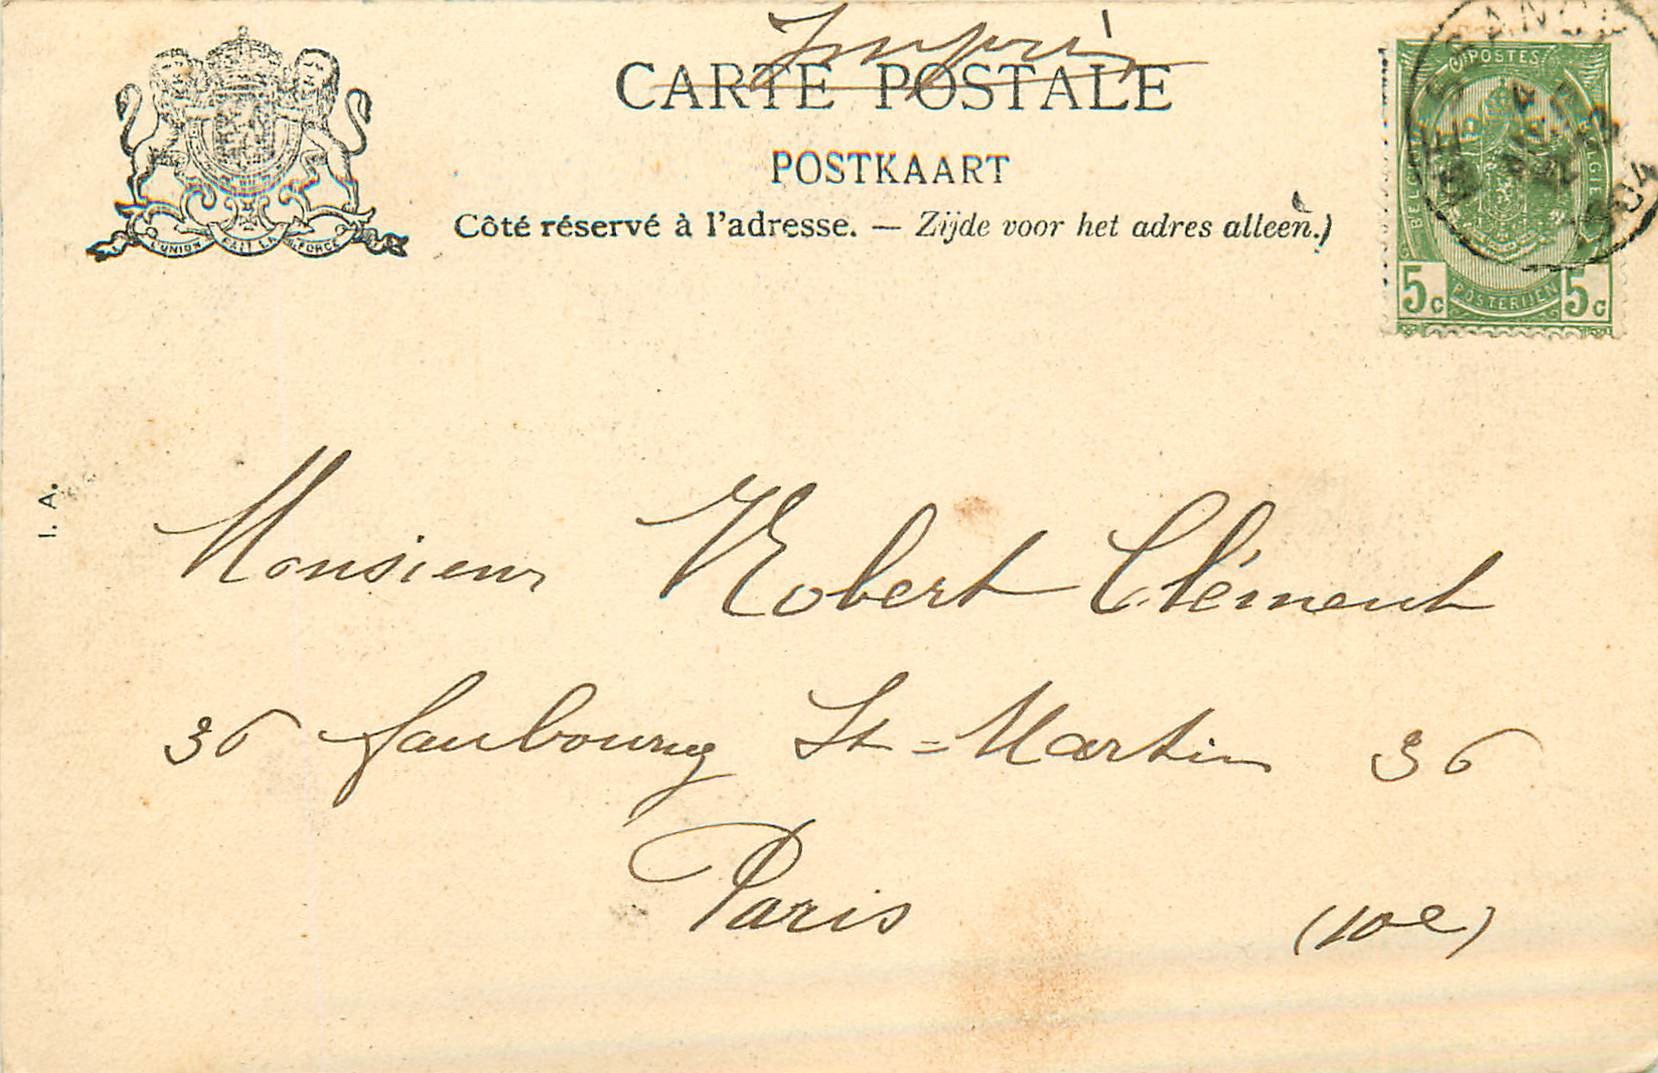 Imprimé
CARTE POSTALE
POSTKAART
Côté réservé à l'adresse. — Zijde voor het adres alleen.)
L'UNION FAIT LA FORCE
POSTES
BELGIQUE
BELGIË
5c POSTERIJEN 5c
1904
I. A.
Monsieur Robert Clément
36 faubourg St=Martin 36
Paris (10e)